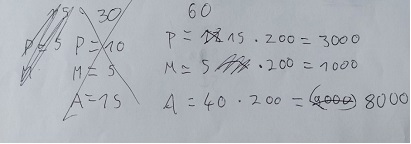 30 60
P = 5 P = 10 P = 15 · 200 = 3000
M = 5 M = 5 · 200 = 1000
A = 15 A = 40 · 200 = 8000